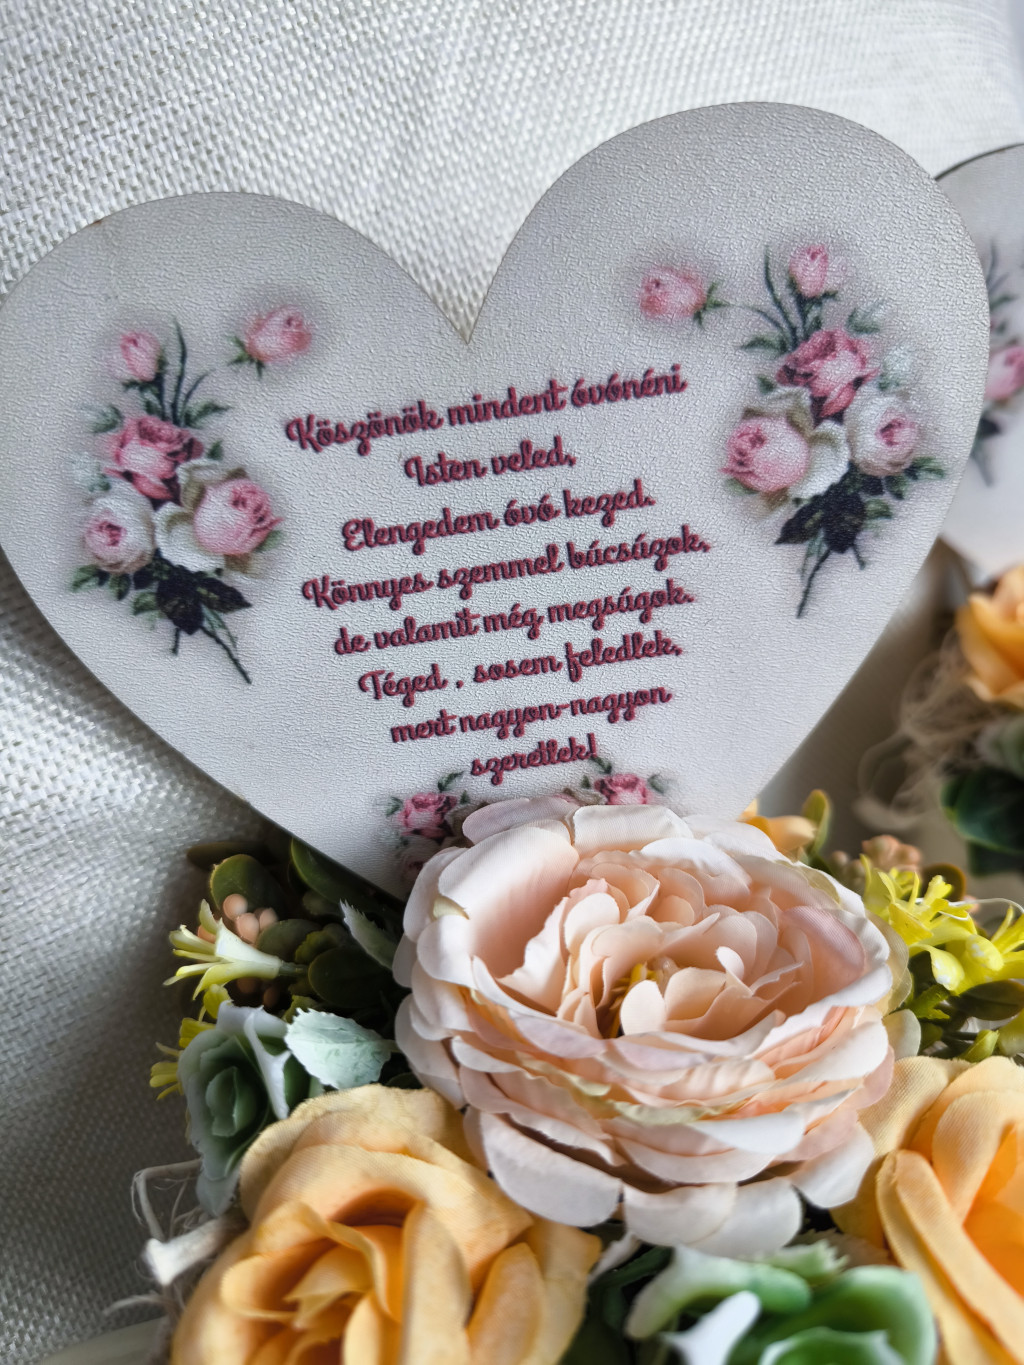 Köszönök mindent óvónéni
Isten veled,
Elengedem óvó kezed.
Könnyes szemmel búcsúzok,
de valamit még megsúgok.
Téged , sosem feledlek,
mert nagyon-nagyon
szeretlek!